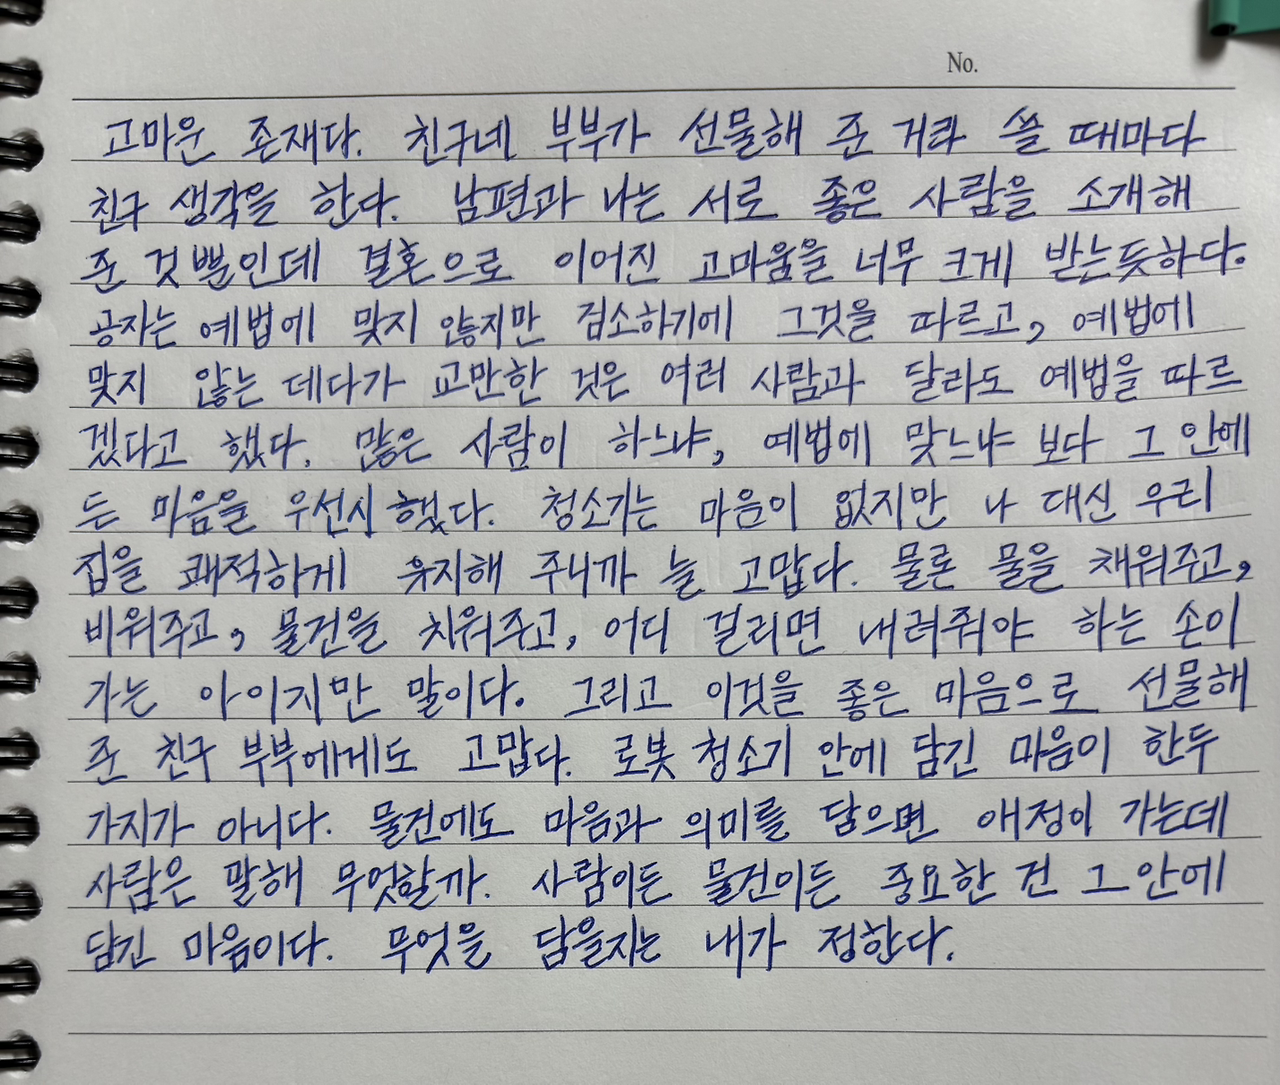 No.
고마운 존재다. 친구네 부부가 선물해 준 거라 쓸 때마다
친구 생각을 한다. 남편과 나는 서로 좋은 사람을 소개해
준 것 뿐인데 결혼으로 이어진 고마움을 너무 크게 받는듯하다.
공자는 예법에 맞지 않지만 검소하기에 그것을 따르고, 예법에
맞지 않는 데다가 교만한 것은 여러 사람과 달라도 예법을 따르
겠다고 했다. 많은 사람이 하느냐, 예법에 맞느냐 보다 그 안에
든 마음을 우선시 했다. 청소기는 마음이 없지만 나 대신 우리
집을 쾌적하게 유지해 주니까 늘 고맙다. 물론 물을 채워주고,
비워주고, 물건을 치워주고, 어디 걸리면 내려줘야 하는 손이
가는 아이지만 말이다. 그리고 이것을 좋은 마음으로 선물해
준 친구 부부에게도 고맙다. 로봇 청소기 안에 담긴 마음이 한두
가지가 아니다. 물건에도 마음과 의미를 담으면 애정이 가는데
사람은 말해 무엇할까. 사람이든 물건이든 중요한 건 그 안에
담긴 마음이다. 무엇을 담을지는 내가 정한다.